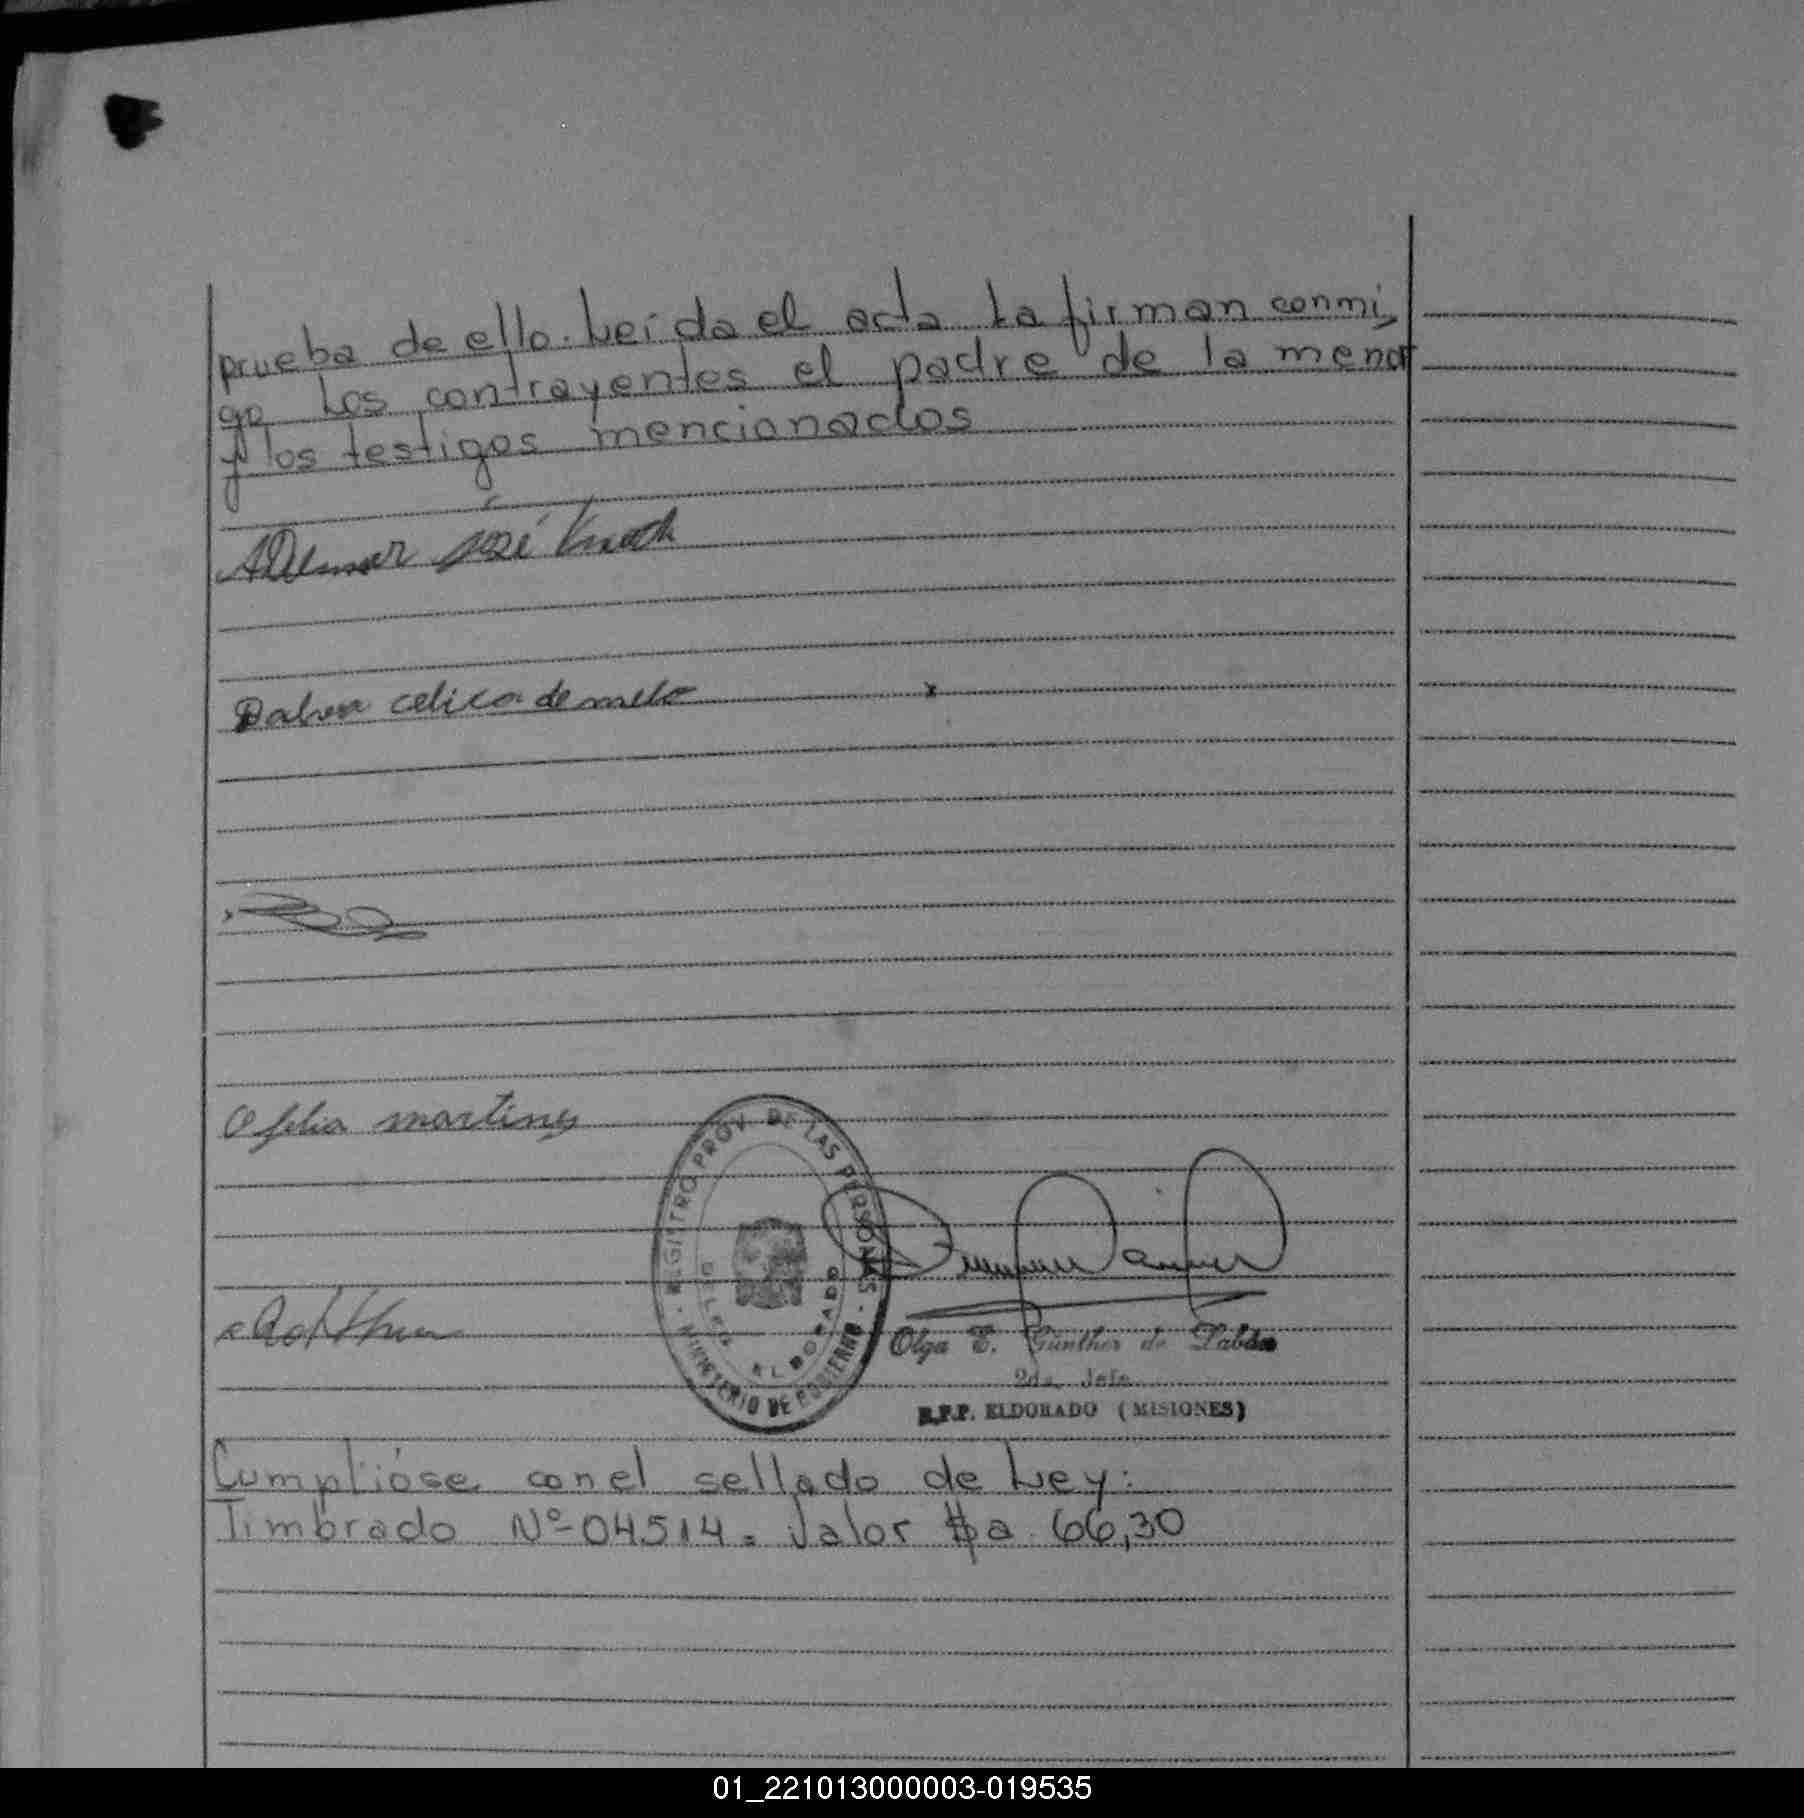 prueba de ello. Leída el acta La firman conmi,
go Los contrayentes el padre de la menor
y los testigos mencionados
Adelmar José
celica de melo
x
Ofelia martines
REGISTRO PROV. DE LAS PERSONAS
DELEG. ELDORADO
MINISTERIO DE GOBIERNO
Olga E. Günther de
2da. Jefe
R.P.P. ELDORADO (MISIONES)
Cumplióse con el sellado de Ley:
Timbrado Nº-04514= Valor $a 66,30
01_221013000003-019535